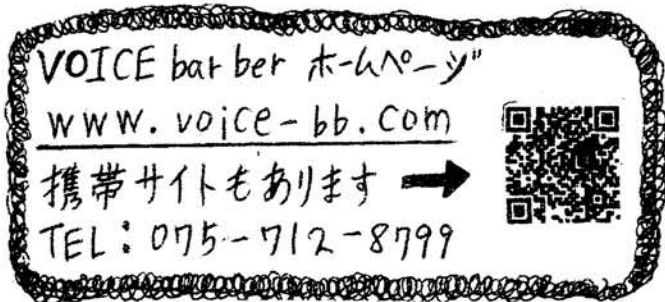 VOICE barber ホームページ
www.voice-bb.com
携帯サイトもあります ➡
TEL：075-712-8799